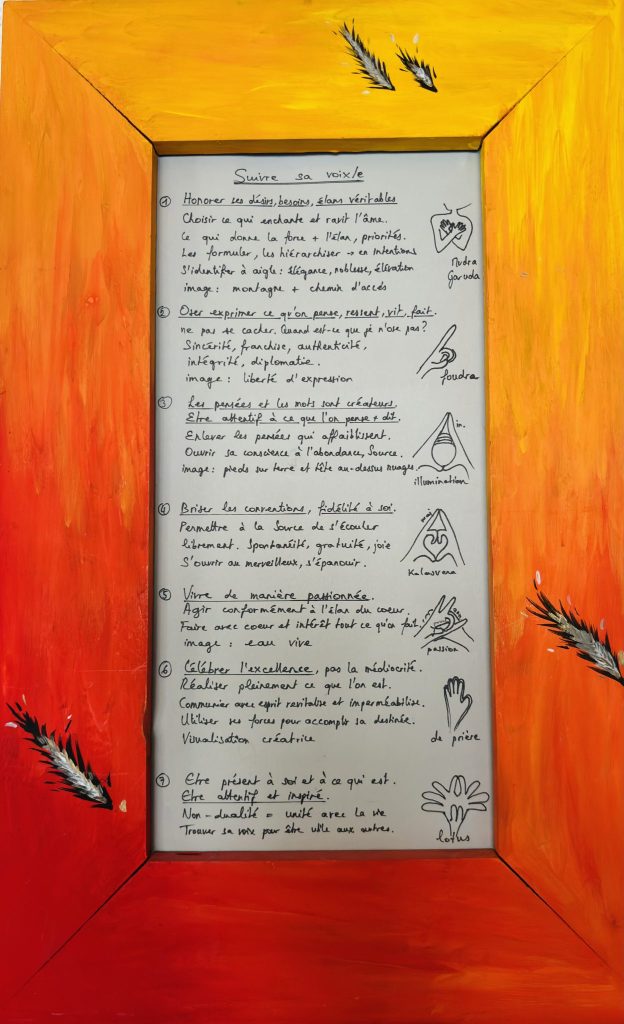 Suivre sa voix/e
① Honorer ses désirs, besoins, élans véritables
Choisir ce qui enchante et ravit l'âme.
Ce qui donne la force + l'élan, priorités.
Les formuler, les hiérarchiser → en intentions
S'identifier à aigle : élégance, noblesse, élévation
image : montagne + chemin d'accés
Mudra
Garuda
② Oser exprimer ce qu'on pense, ressent, vit, fait.
ne pas se cacher. Quand est-ce que je n'ose pas ?
Sincérité, franchise, authenticité,
intégrité, diplomatie.
image : liberté d'expression
foudra
③ Les pensées et les mots sont créateurs.
Etre attentif à ce que l'on pense + dit.
Enlever les pensées qui affaiblissent.
Ouvrir sa conscience à l'abondance, Source.
image : pieds sur terre et tête au-dessus nuages.
in.
illumination
④ Briser les conventions, fidélité à soi.
Permettre à la Source de s'écouler
librement. Spontanéité, gratuité, joie
S'ouvrir au merveilleux, s'épanouir.
Kalasvena
⑤ Vivre de manière passionnée.
Agir conformément à l'élan du coeur.
Faire avec coeur et intérêt tout ce qu'on fait.
image : eau vive
passion
⑥ Célébrer l'excellence, pas la médiocrité.
Réaliser pleinement ce que l'on est.
Communier avec esprit revitalise et imperméabilise.
Utiliser ses forces pour accomplir sa destinée.
Visualisation créatrice
de prière
⑦ Etre présent à soi et à ce qui est.
Etre attentif et inspiré.
Non-dualité = unité avec la vie
Trouver sa voix pour être utile aux autres.
lotus